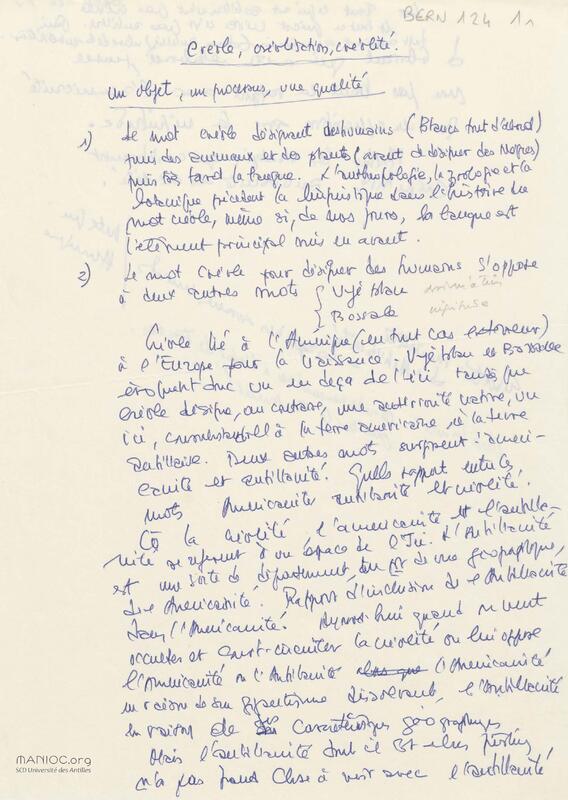 BERN 124 11
Créole, créolisation, créolité.
Un objet, un processus, une qualité
1) Le mot créole désignant des humains (Blancs tout d'abord)
puis des animaux et des plantes (avant de désigner des Nègres)
puis tard la langue. L'anthropologie, la zoologie et la
botanique précèdent la linguistique dans l'histoire du
mot créole, même si, de nos jours, la langue est
l'élément principal mis en avant.
2) Le mot créole pour désigner des humains s'oppose
à deux autres mots { Vyé blan
Bossale
Créole lié à l'Amérique (en tout cas extérieur)
à l'Europe pour la naissance. Vyé blan et Bossale
évoquent donc un en deçà de l'ici tandis que
créole désigne, au contraire, une antériorité native, un
ici, consubstantiel à la terre américaine, à la terre
antillaise. Deux autres mots surgissent : améri-
canité et antillanité. Quels rapports entre ces
mots Américanité antillanité et créolité.
la créolité, l'américanité et l'antilla-
nité se réfèrent à un espace de l'Ici. L'Antillanité
est une sorte de département du de vue géographique,
de l'Américanité. Rapport d'inclusion de l'Antillanité
dans l'Américanité. Aujourd'hui quand on veut
occulter et court-circuiter la créolité on lui oppose
l'Américanité ou l'Antillanité l'Américanité
en raison de son gigantisme dissolvant, l'Antillanité
en raison de ses caractéristiques géographiques
Mais l'antillanité dont il est alors question
n'a pas grand chose à voir avec l'antillanité
MANIOC.org
SCD Université des Antilles